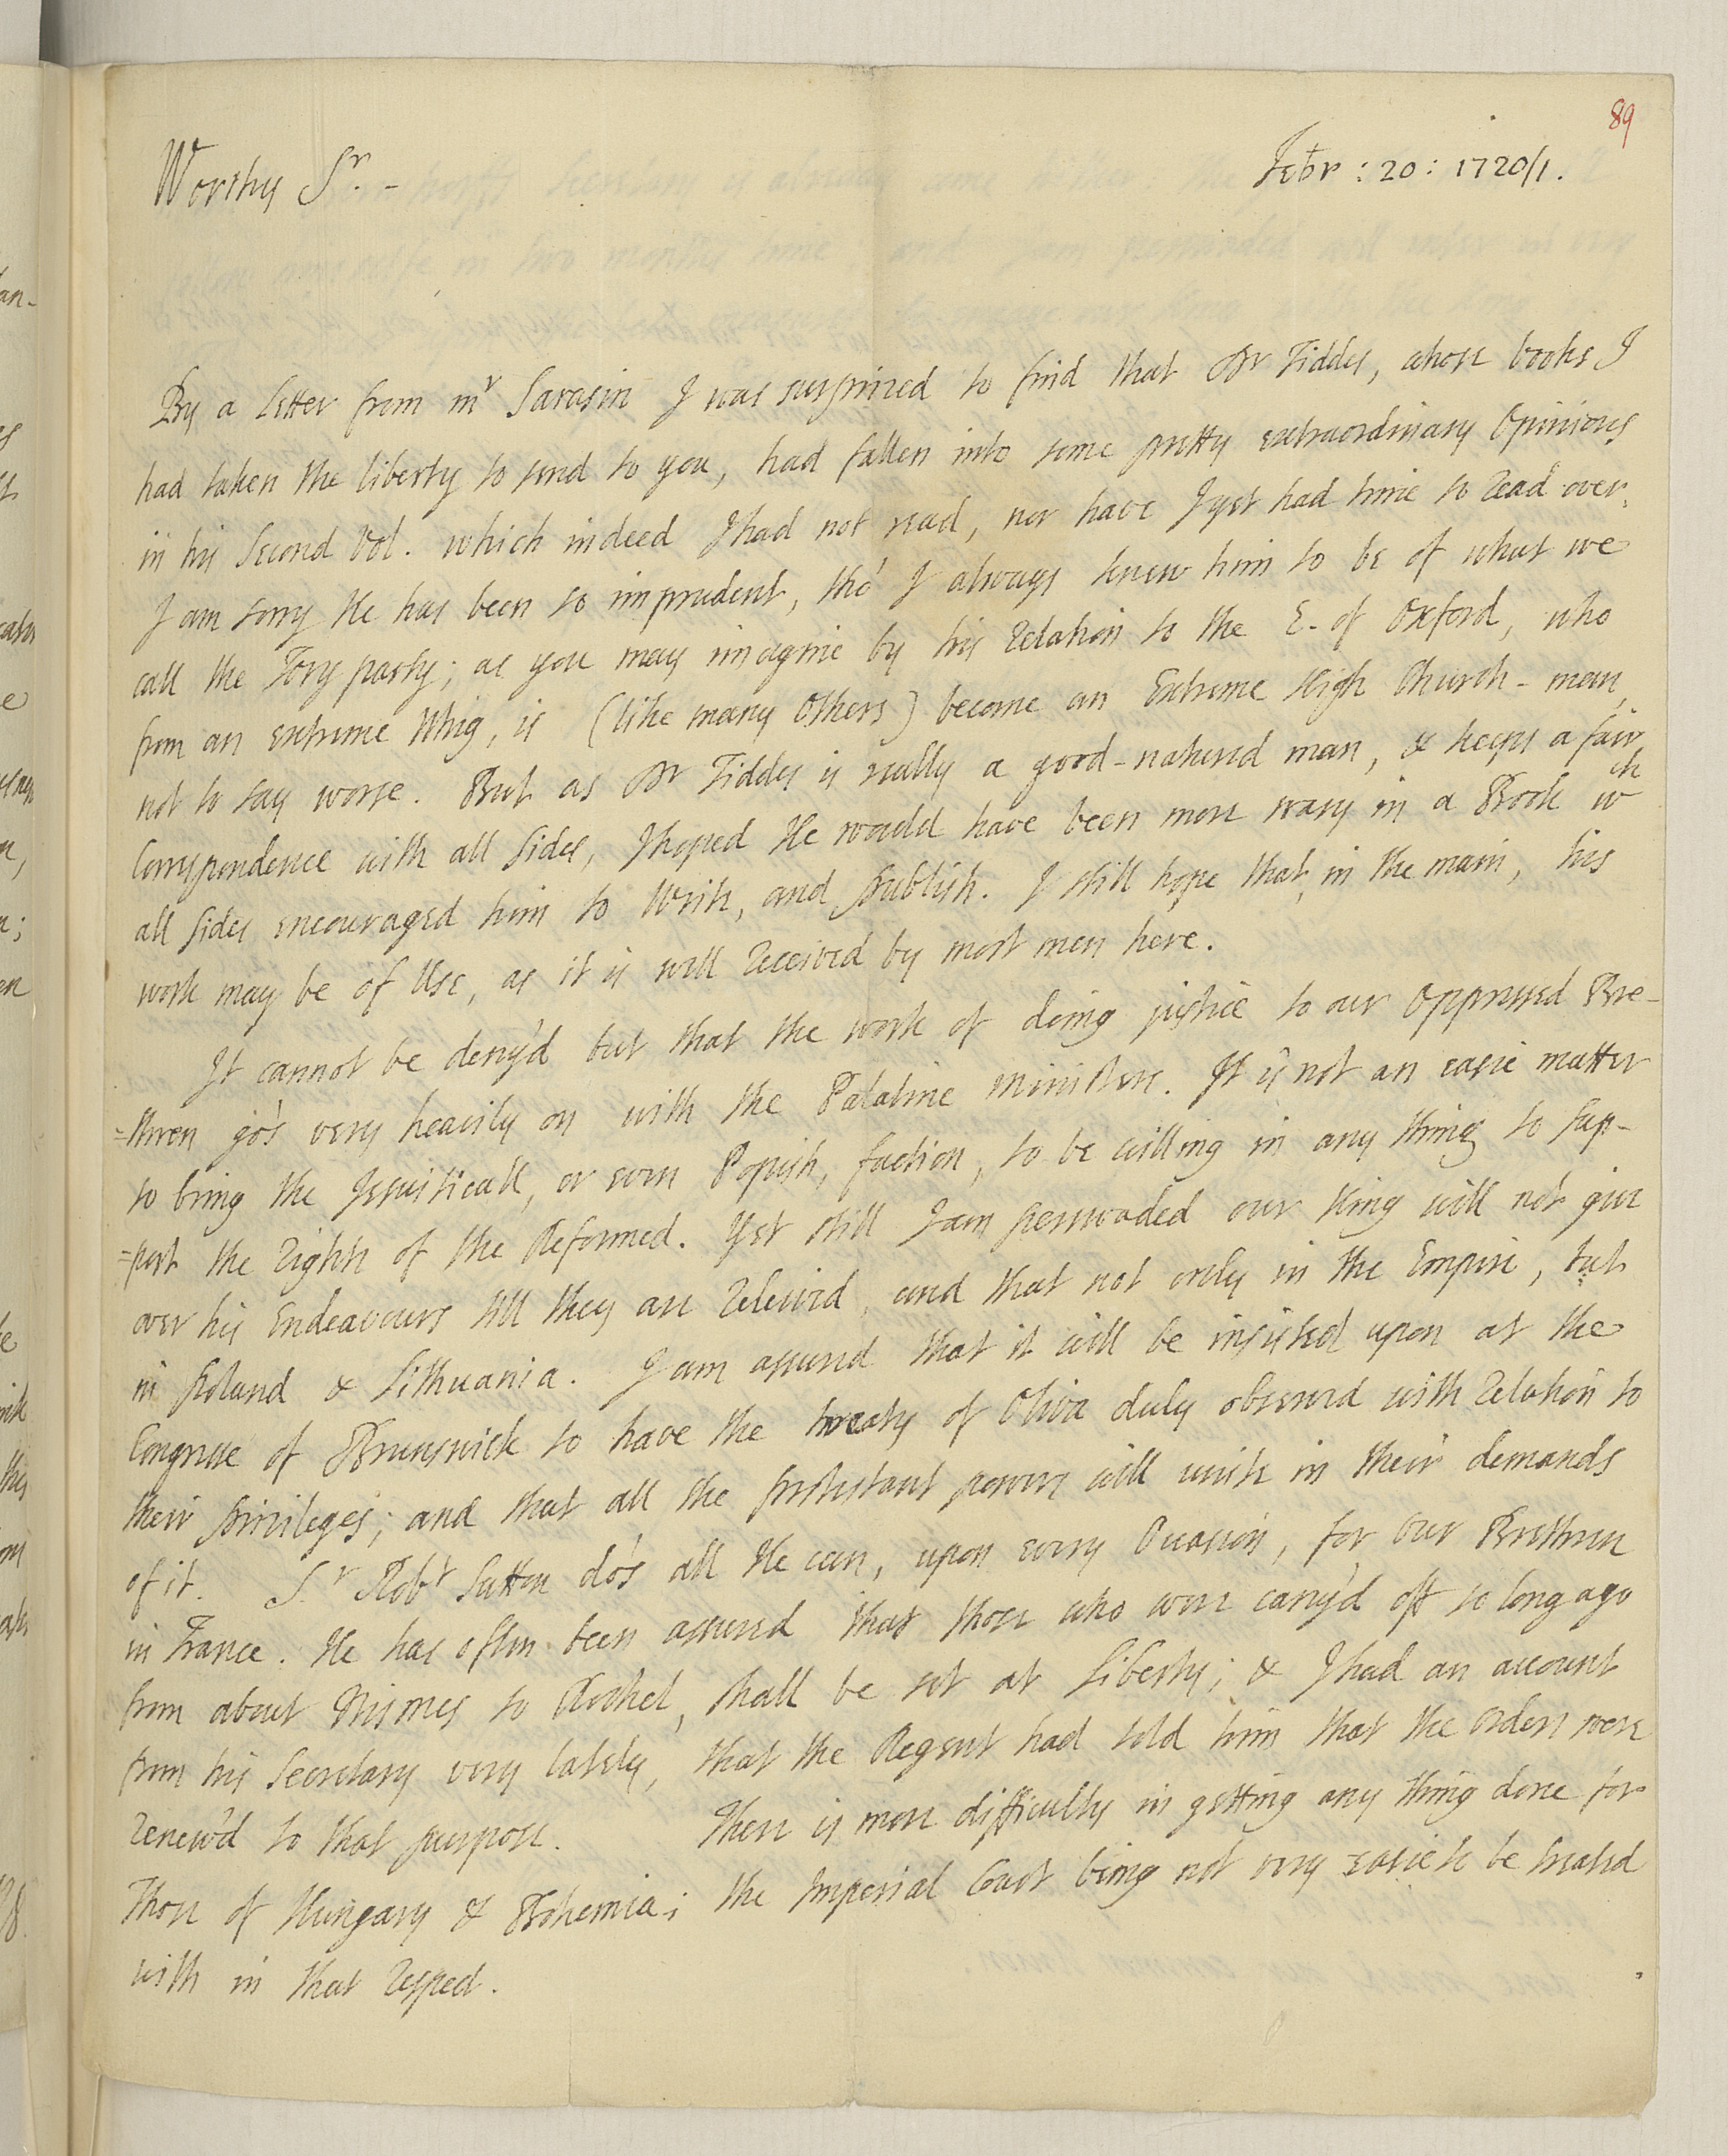 89
Worthy Sr. -
Febr : 20 : 1720/1.
By a Letter from mr Sarasin I was surprized to find that Dr Fiddes, whose books I
had taken the liberty to send to you, had fallen into some pretty extraordinary Opinions
in his Second Vol. which indeed I had not read, nor have I yet had time to Read over.
I am sorry He has been so imprudent, tho' I always knew him to be of what we
call the Tory party; as you may imagine by his Relation to the E. of Oxford, who
from an extreme Whig, is (like many Others) become an Extreme High Church-man,
not to say worse. But as Dr Fiddes is really a good-natured man, & keeps a fair
Correspondence with all sides, I hoped He would have been more wary in a Book wch
all sides encouraged him to Write, and Publish. I still hope that, in the main, his
work may be of Use, as it is well Received by most men here.
It cannot be deny'd but that the work of doing justice to our Oppressed Bre-
=thren go's very heavily on with the Palatine Ministers. It is not an easie matter
to bring the Jesuiticall, or even Popish, faction, to be willing in any thing to sup-
=port the Rights of the Reformed. Yet still I am perswaded our King will not give
over his Endeavours till they are Releived, and that not only in the Empire, but
in Poland & Lithuania. I am assured that it will be insisted upon at the
Congresse of Brunswick to have the treaty of Oliva duly observed with Relation to
their Privileges; and that all the Protestant powers will unite in their demands
of it. Sr Robt Sutton do's all He can, upon every Occasion, for Our Brethren
in France. He has often been assured that those who were carry'd off so long ago
from about Nismes to Rochel, shall be set at Liberty; & I had an account
from his Secretary very lately, that the Regent had told him that the Orders were
Renew'd to that purpose. There is more difficulty in getting any thing done for
Those of Hungary & Bohemia; the Imperial Court being not very easie to be treated
with in that Respect.